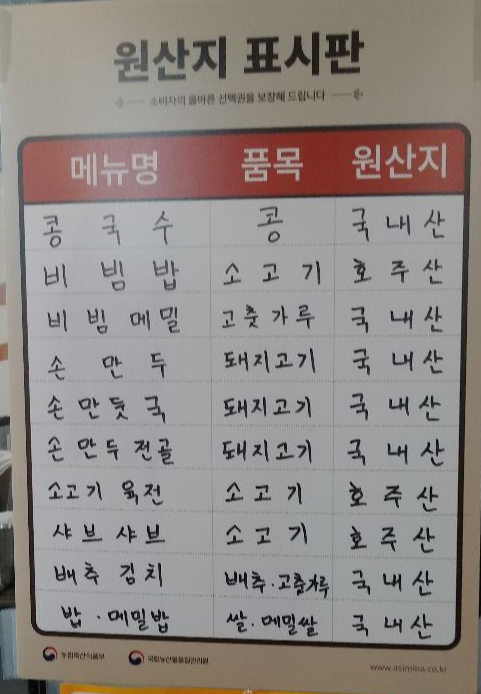 원산지 표시판
소비자의 올바른 선택권을 보장해 드립니다
메뉴명 품목 원산지
콩국수 콩 국내산
비빔밥 소고기 호주산
비빔메밀 고춧가루 국내산
손만두 돼지고기 국내산
손만듯국 돼지고기 국내산
손만두전골 돼지고기 국내산
소고기 육전 소고기 호주산
샤브샤브 소고기 호주산
배추 김치 배추·고춧가루 국내산
밥·메밀밥 쌀·메밀쌀 국내산
농림축산식품부 국립농산물품질관리원
www.asimina.co.kr